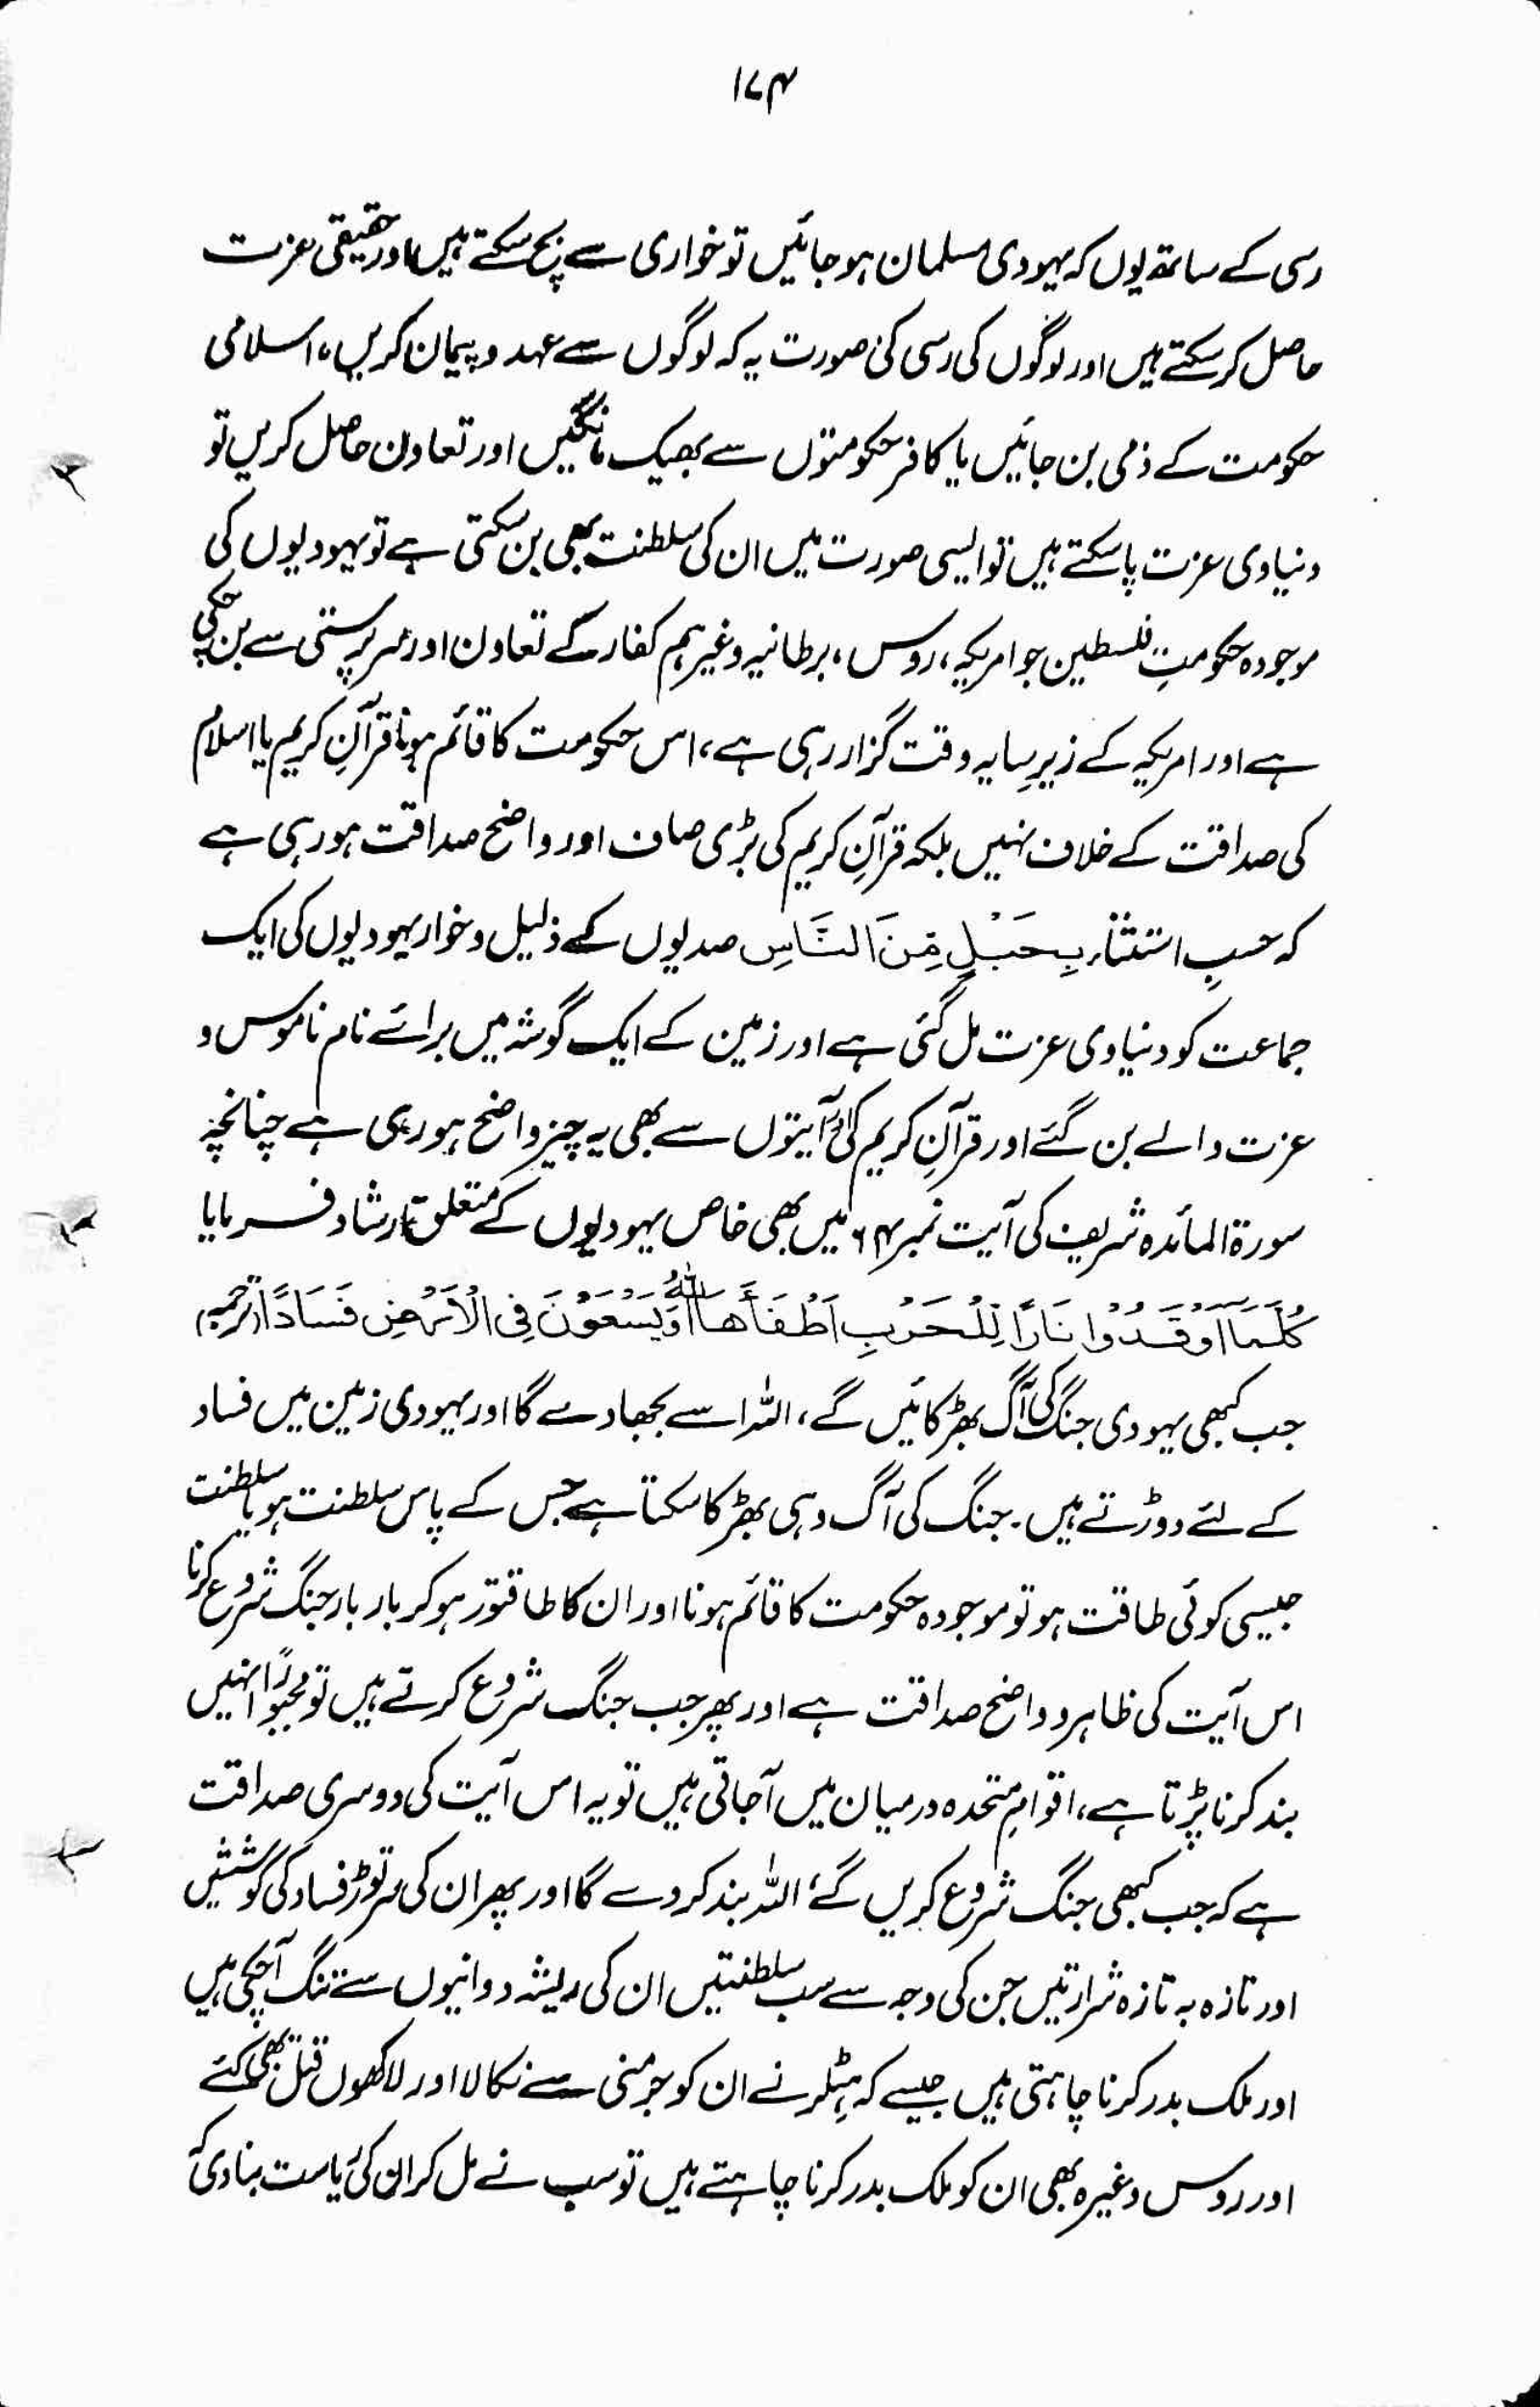 ۱۷۴
رسی کے ساتھ یوں کہ یہودی مسلمان ہو جائیں تو خواری سے بچ سکتے ہیں اور حقیقی عزت
حاصل کر سکتے ہیں اور لوگوں کی رسی کی صورت یہ کہ لوگوں سے عہد و پیمان کریں، اسلامی
حکومت کے ذمی بن جائیں یا کافر حکومتوں سے بھیک مانگیں اور تعاون حاصل کریں تو
دنیاوی عزت پا سکتے ہیں تو ایسی صورت میں ان کی سلطنت بھی بن سکتی ہے تو یہودیوں کی
موجودہ حکومتِ فلسطین جو امریکہ، روس، برطانیہ وغیرہم کفار کے تعاون اور سرپرستی سے بن چکی
ہے اور امریکہ کے زیرِ سایہ وقت گزار رہی ہے، اس حکومت کا قائم ہونا قرآنِ کریم یا اسلام
کی صداقت کے خلاف نہیں بلکہ قرآنِ کریم کی بڑی صاف اور واضح صداقت ہو رہی ہے
کہ حسبِ استثناء بِحَبْلٍ مِّنَ النَّاسِ صدیوں کے ذلیل و خوار یہودیوں کی ایک
جماعت کو دنیاوی عزت مل گئی ہے اور زمین کے ایک گوشہ میں برائے نام ناموس و
عزت والے بن گئے اور قرآنِ کریم کی آیتوں سے بھی یہ چیز واضح ہو رہی ہے چنانچہ
سورۃ المائدہ شریف کی آیت نمبر ۶۴ میں بھی خاص یہودیوں کے متعلق ارشاد فرمایا
كُلَّمَآ اَوْقَدُوْا نَارًا لِّلْحَرْبِ اَطْفَأَهَا اللّٰهُ وَيَسْعَوْنَ فِى الْاَرْضِ فَسَادًا (ترجمہ)
جب کبھی یہودی جنگ کی آگ بھڑکائیں گے، اللہ اسے بجھا دے گا اور یہودی زمین میں فساد
کے لئے دوڑتے ہیں۔ جنگ کی آگ وہی بھڑکا سکتا ہے جس کے پاس سلطنت ہو یا سلطنت
جیسی کوئی طاقت ہو تو موجودہ حکومت کا قائم ہونا اور ان کا طاقتور ہو کر بار بار جنگ شروع کرنا
اس آیت کی ظاہر و واضح صداقت ہے اور پھر جب جنگ شروع کرتے ہیں تو مجبوراً انہیں
بند کرنا پڑتا ہے، اقوامِ متحدہ درمیان میں آ جاتی ہیں تو یہ اس آیت کی دوسری صداقت
ہے کہ جب کبھی جنگ شروع کریں گے، اللہ بند کر دے گا اور پھر ان کی سرتوڑ فساد کی کوششیں
اور تازہ بہ تازہ شرارتیں جن کی وجہ سے سب سلطنتیں ان کی ریشہ دوانیوں سے تنگ آ چکی ہیں
اور ملک بدر کرنا چاہتی ہیں جیسے کہ ہٹلر نے ان کو جرمنی سے نکالا اور لاکھوں قتل بھی کئے
اور روس وغیرہ بھی ان کو ملک بدر کرنا چاہتے ہیں تو سب نے مل کر ان کی ریاست بنا دی کہ